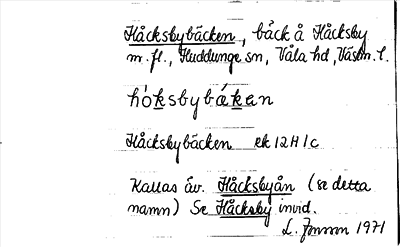 Håcksbybäcken, bäck å Håcksby
m. fl., Huddunge sn, Våla hd, Västm. l.
hóksbybäkan
Håcksbybäcken ek 12H 1c
Kallas äv. Håcksbyån (se detta
namn) Se Håcksby invid.
L. 1971